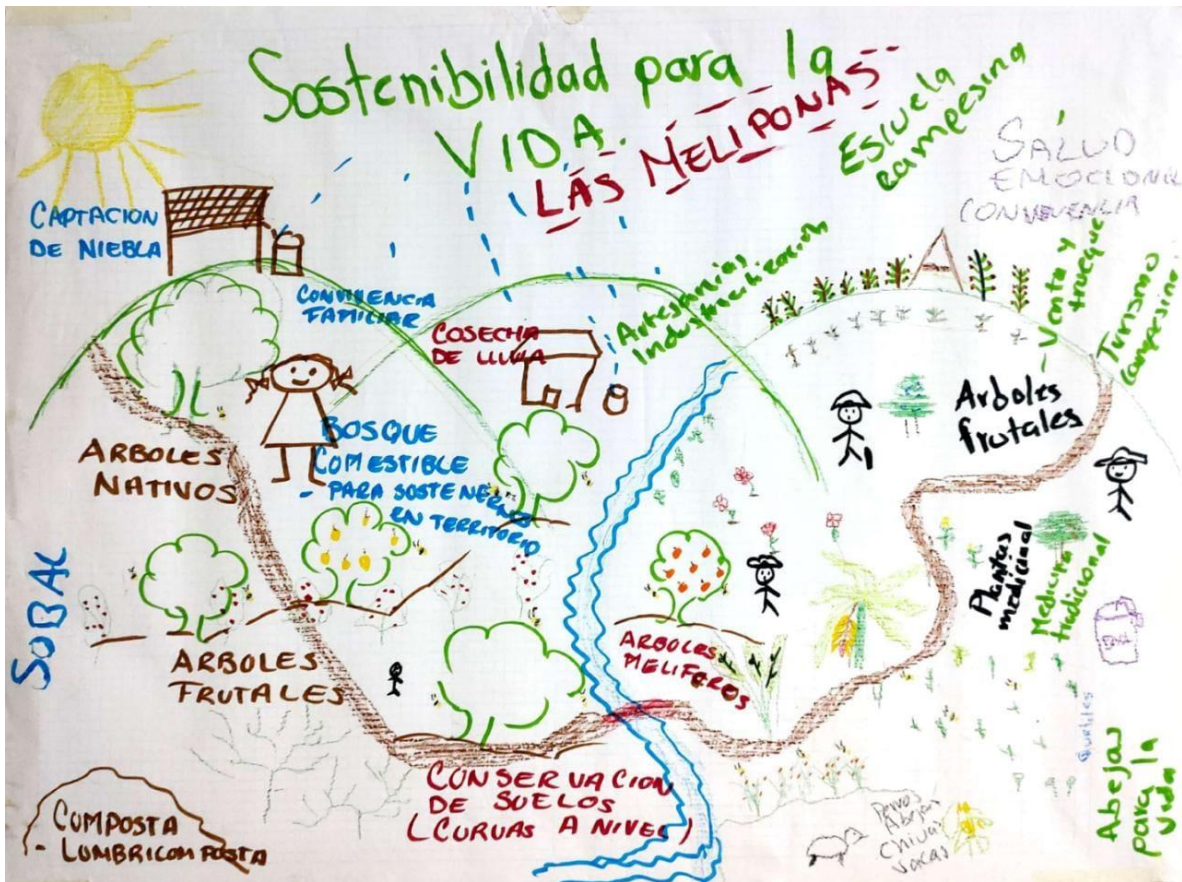 Sostenibilidad para la
VIDA.
LAS MELIPONAS
Escuela
campesina
SALUD
EMOCIONAL
CONVIVENCIA
CAPTACION
DE NIEBLA
CONVIVENCIA
FAMILIAR
COSECHA
DE LLUVIA
Artesanias
Industrialización
- Venta y
trueque
Turismo
campesino.
Arboles
frutales
ARBOLES
NATIVOS
BOSQUE
COMESTIBLE
- PARA SOSTENERNOS
EN TERRITORIO
SOBAL
ARBOLES
FRUTALES
ARBOLES
MELIFEROS
Plantas
medicinal
Medicina
tradicional
CONSERVACION
DE SUELOS
(CURVAS A NIVEL)
COMPOSTA
- LOMBRICOMPOSTA
Abejas
Chivas
Vacas
Abejas
para la
vida